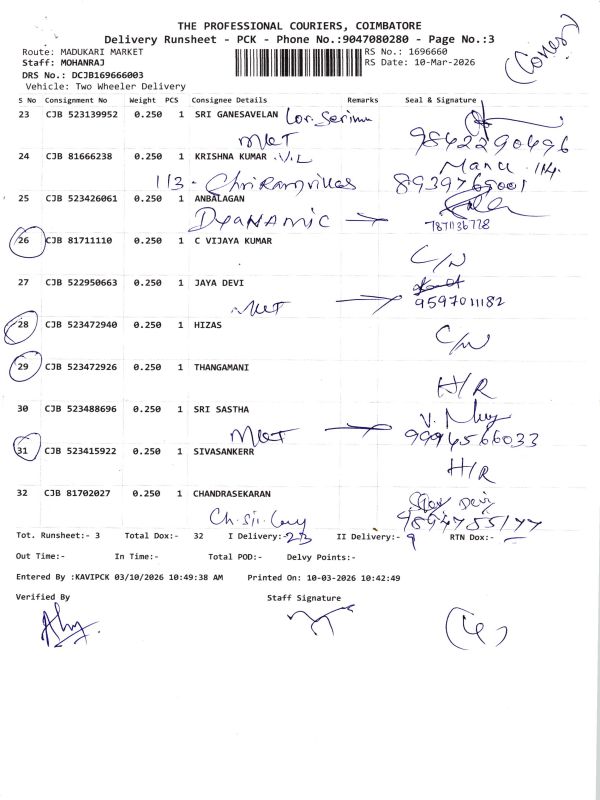 THE PROFESSIONAL COURIERS, COIMBATORE
Delivery Runsheet - PCK - Phone No.:9047080280 - Page No.:3
Route: MADUKARI MARKET RS No.: 1696660
Staff: MOHANRAJ RS Date: 10-Mar-2026
DRS No.: DCJB169666003
Vehicle: Two Wheeler Delivery
S No Consignment No Weight PCS Consignee Details Remarks Seal & Signature
23 CJB 523139952 0.250 1 SRI GANESAVELAN
MKT 9842290496
24 CJB 81666238 0.250 1 KRISHNA KUMAR .V.L
113 - 8939769001
25 CJB 523426061 0.250 1 ANBALAGAN
DYANAMIC
26 CJB 81711110 0.250 1 C VIJAYA KUMAR
C/N
27 CJB 522950663 0.250 1 JAYA DEVI
MKT 9597011182
28 CJB 523472940 0.250 1 HIZAS
C/N
29 CJB 523472926 0.250 1 THANGAMANI
H/R
30 CJB 523488696 0.250 1 SRI SASTHA
MKT 9994566033
31 CJB 523415922 0.250 1 SIVASANKERR
H/R
32 CJB 81702027 0.250 1 CHANDRASEKARAN
Tot. Runsheet:- 3 Total Dox:- 32 I Delivery:- 23 II Delivery:- 9 RTN Dox:-
Out Time:- In Time:- Total POD:- Delvy Points:-
Entered By :KAVIPCK 03/10/2026 10:49:38 AM Printed On: 10-03-2026 10:42:49
Verified By Staff Signature